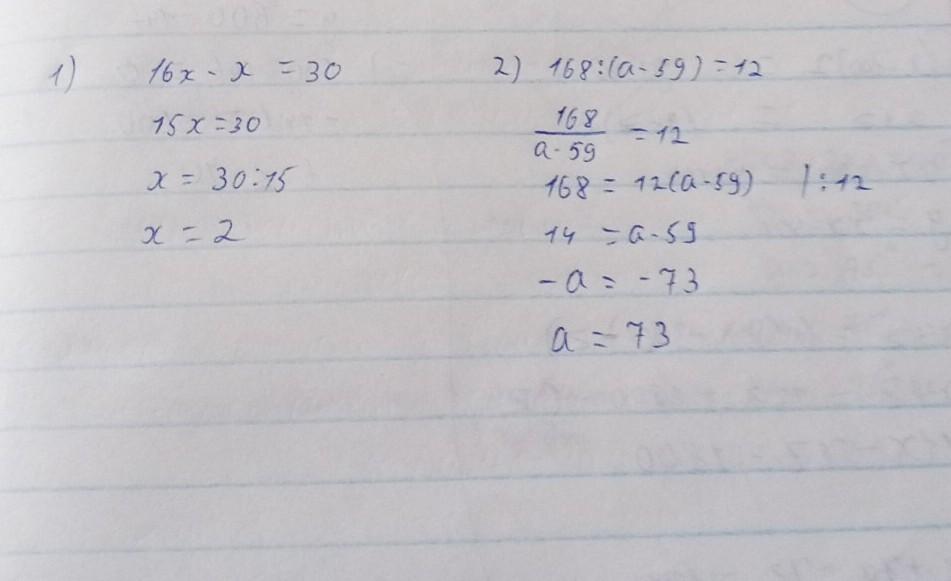 1) 16x - x = 30
15x = 30
x = 30:15
x = 2
2) 168:(a-59) = 12
168/a-59 = 12
168 = 12(a-59) |:12
14 = a-59
-a = -73
a = 73